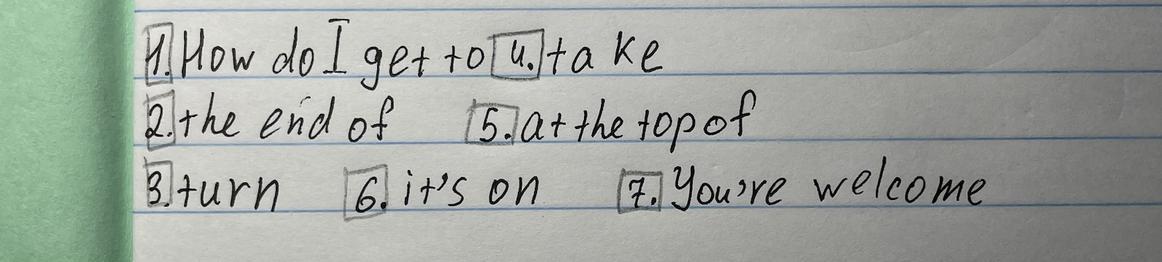 1. How do I get to 4. take
2. the end of 5. at the top of
3. turn 6. it's on 7. You're welcome